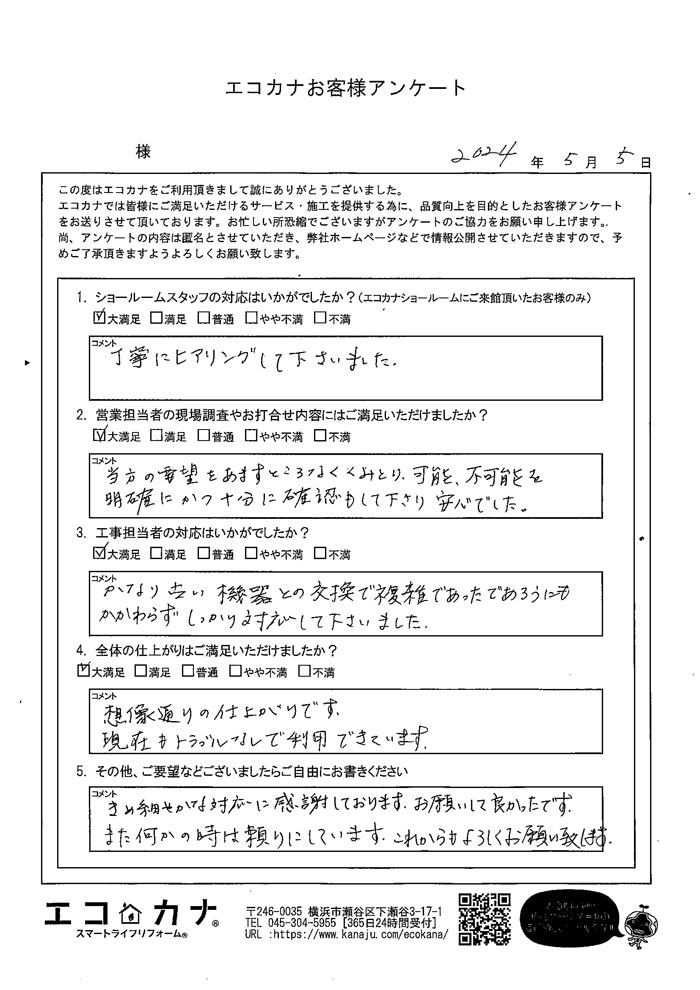 エコカナお客様アンケート
様
2024 年 5 月 5 日
この度はエコカナをご利用頂きまして誠にありがとうございました。
エコカナでは皆様にご満足いただけるサービス・施工を提供する為に、品質向上を目的としたお客様アンケート
をお送りさせて頂いております。お忙しい所恐縮でございますがアンケートのご協力をお願い申し上げます。
尚、アンケートの内容は匿名とさせていただき、弊社ホームページなどで情報公開させていただきますので、予
めご了承頂きますようよろしくお願い致します。
1. ショールームスタッフの対応はいかがでしたか？(エコカナショールームにご来館頂いたお客様のみ)
☑大満足 □満足 □普通 □やや不満 □不満
コメント
丁寧にヒアリングして下さいました.
2. 営業担当者の現場調査やお打合せ内容にはご満足いただけましたか？
☑大満足 □満足 □普通 □やや不満 □不満
コメント
当方の要望をあますところなくくみとり、可能、不可能を
明確にかつ十分に確認もして下さり安心でした。
3. 工事担当者の対応はいかがでしたか？
☑大満足 □満足 □普通 □やや不満 □不満
コメント
かなり古い機器との交換で複雑であったであろうにも
かかわらずしっかり対応して下さいました.
4. 全体の仕上がりはご満足いただけましたか？
☑大満足 □満足 □普通 □やや不満 □不満
コメント
想像通りの仕上がりです.
現在もトラブルなしで利用できています.
5. その他、ご要望などございましたらご自由にお書きください
コメント
きめ細やかな対応に感謝しております. お願いして良かったです.
また何かの時は頼りにしています. これからもよろしくお願い致します.
エコカナ®
スマートライフリフォーム®
〒246-0035 横浜市瀬谷区下瀬谷3-17-1
TEL 045-304-5955 [365日24時間受付]
URL :https://www.kanaju.com/ecokana/